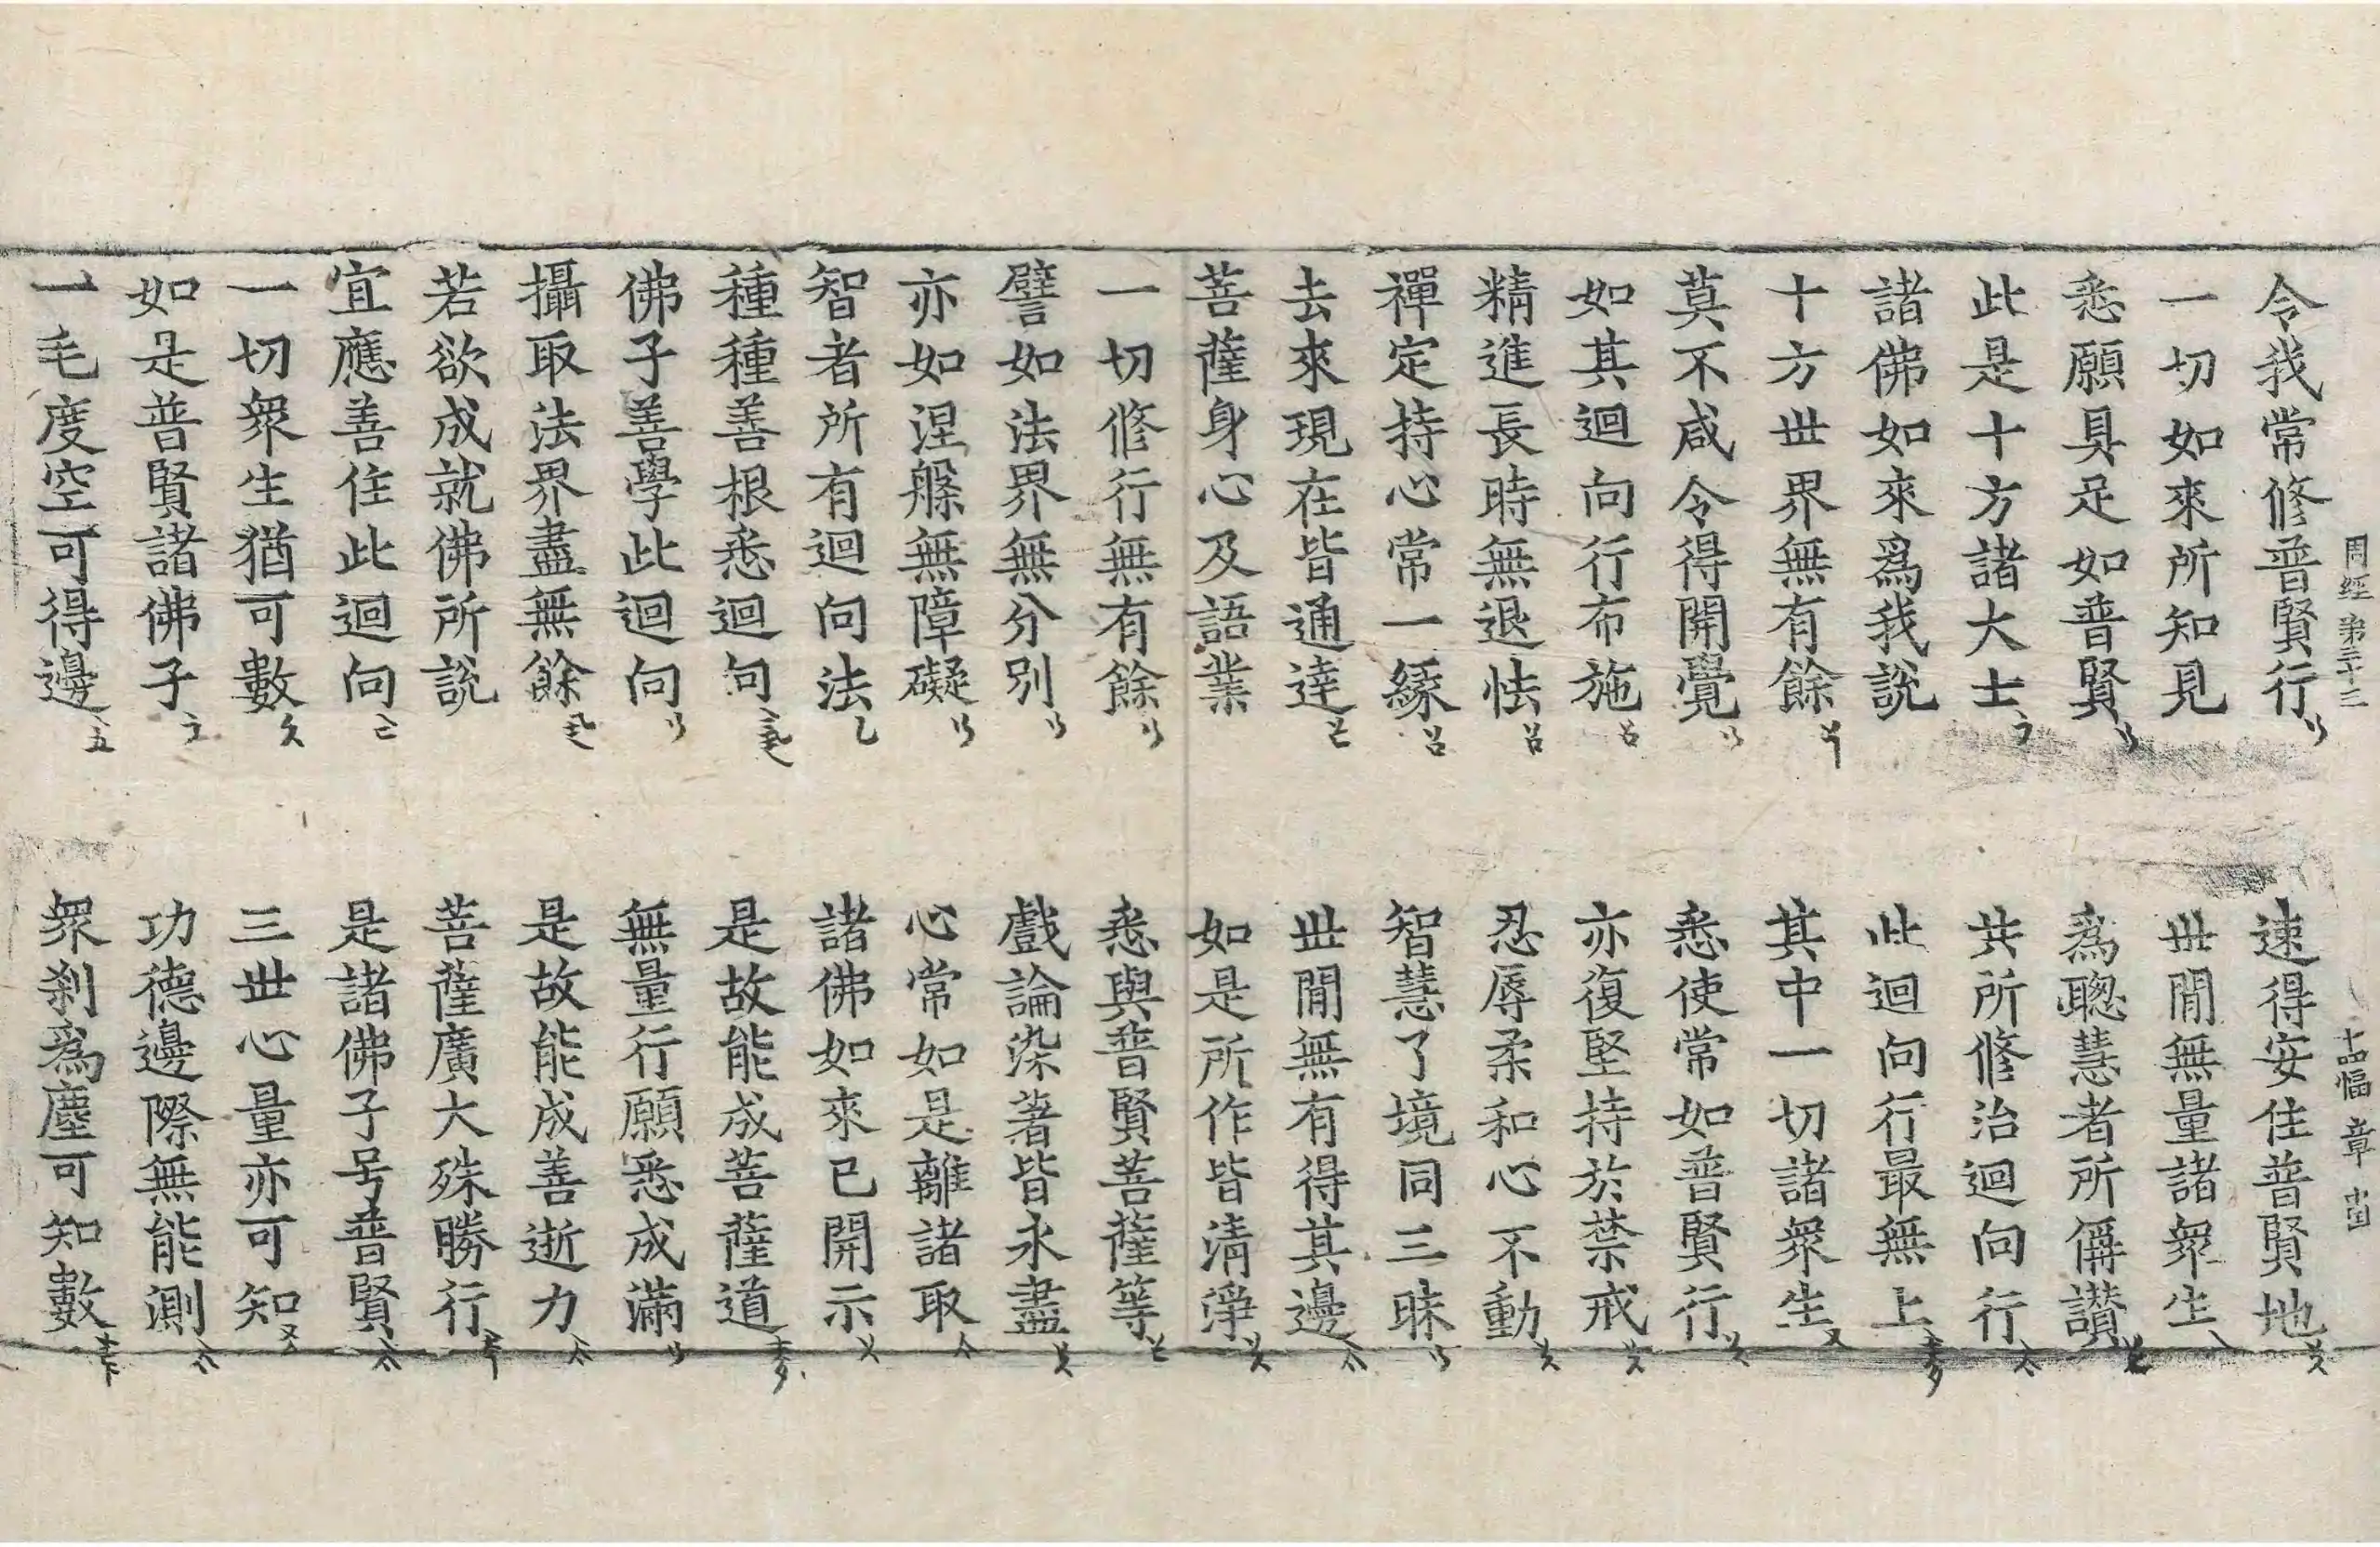 周經 第三十三 十四幅 章
令我常修普賢行 速得安住普賢地
一切如來所知見 世閒無量諸衆生
悉願具足如普賢 爲聰慧者所偁讃
此是十方諸大士 共所修治迴向行
諸佛如來爲我說 此迴向行最無上
十方世界無有餘 其中一切諸衆生
莫不咸令得開覺 悉使常如普賢行
如其迴向行布施 亦復堅持於禁戒
精進長時無退怯 忍辱柔和心不動
禪定持心常一緣 智慧了境同三昧
去來現在皆通達 世閒無有得其邊
菩薩身心及語業 如是所作皆淸淨
一切修行無有餘 悉與普賢菩薩等
譬如法界無分別 戲論染著皆永盡
亦如涅槃無障礙 心常如是離諸取
智者所有迴向法 諸佛如來已開示
種種善根悉迴向 是故能成菩薩道
佛子善學此迴向 無量行願悉成滿
攝取法界盡無餘 是故能成善逝力
若欲成就佛所說 菩薩廣大殊勝行
宜應善住此迴向 是諸佛子号普賢
一切衆生猶可數 三世心量亦可知
如是普賢諸佛子 功德邊際無能測
一毛度空可得邊 衆刹爲塵可知數